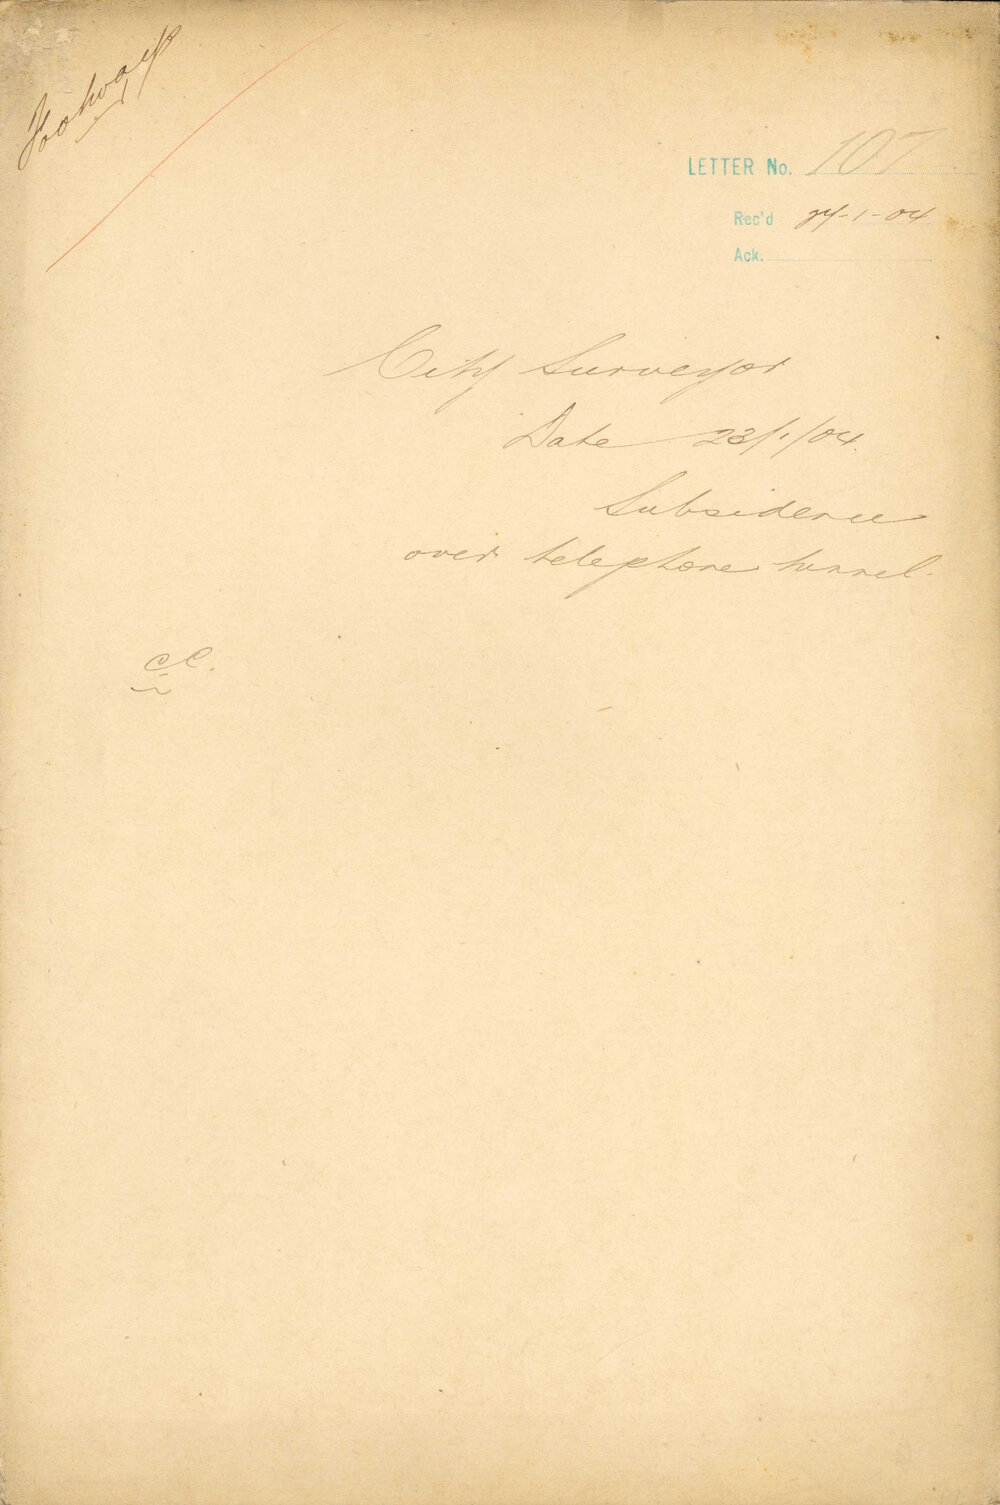 Footways
LETTER No. 107
Rec'd 27-1-04
Ack.
City Surveyor
Date 23/1/04.
Subsidence
over telephone tunnel.
CC.